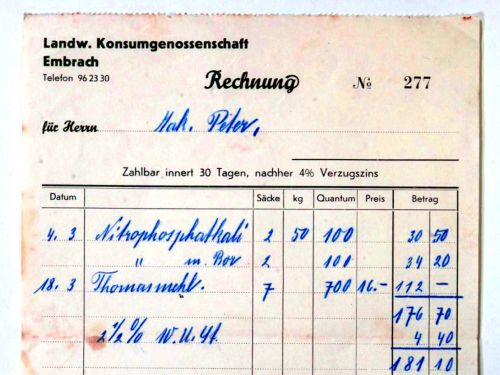 Landw. Konsumgenossenschaft
Embrach
Telefon 96 23 30
Rechnung № 277
für Herrn Mak. Peter,
Zahlbar innert 30 Tagen, nachher 4% Verzugszins
Datum Säcke kg Quantum Preis Betrag
4. 3 Nitrophosphatkali 2 50 100 30 50
" m. Bor 2 100 34 20
18. 3 Thomasmehl. 7 700 16.- 112 -
176 70
2 1/2 % W.U.St. 4 40
181 10